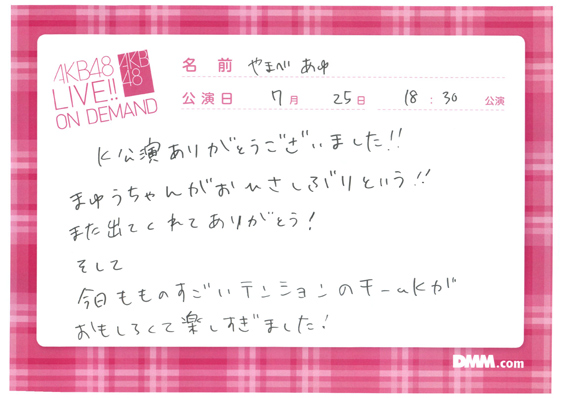 AKB48
LIVE!!
ON DEMAND
AKB
48
名前 やまべ あゆ
公演日 7月 25日 18:30 公演
K公演ありがとうございました!!
まゆうちゃんがおひさしぶりという!!
また出てくれてありがとう!
そして
今日もものすごいテンションのチームKが
おもしろくて楽しすぎました!
DMM.com